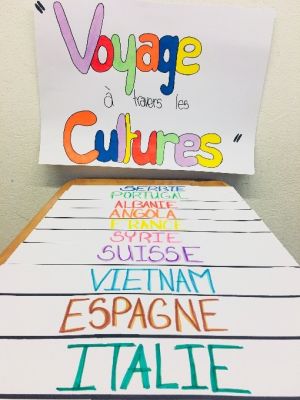 "Voyage
à travers les
Cultures"
SERBIE
PORTUGAL
ALBANIE
ANGOLA
FRANCE
SYRIE
SUISSE
VIETNAM
ESPAGNE
ITALIE